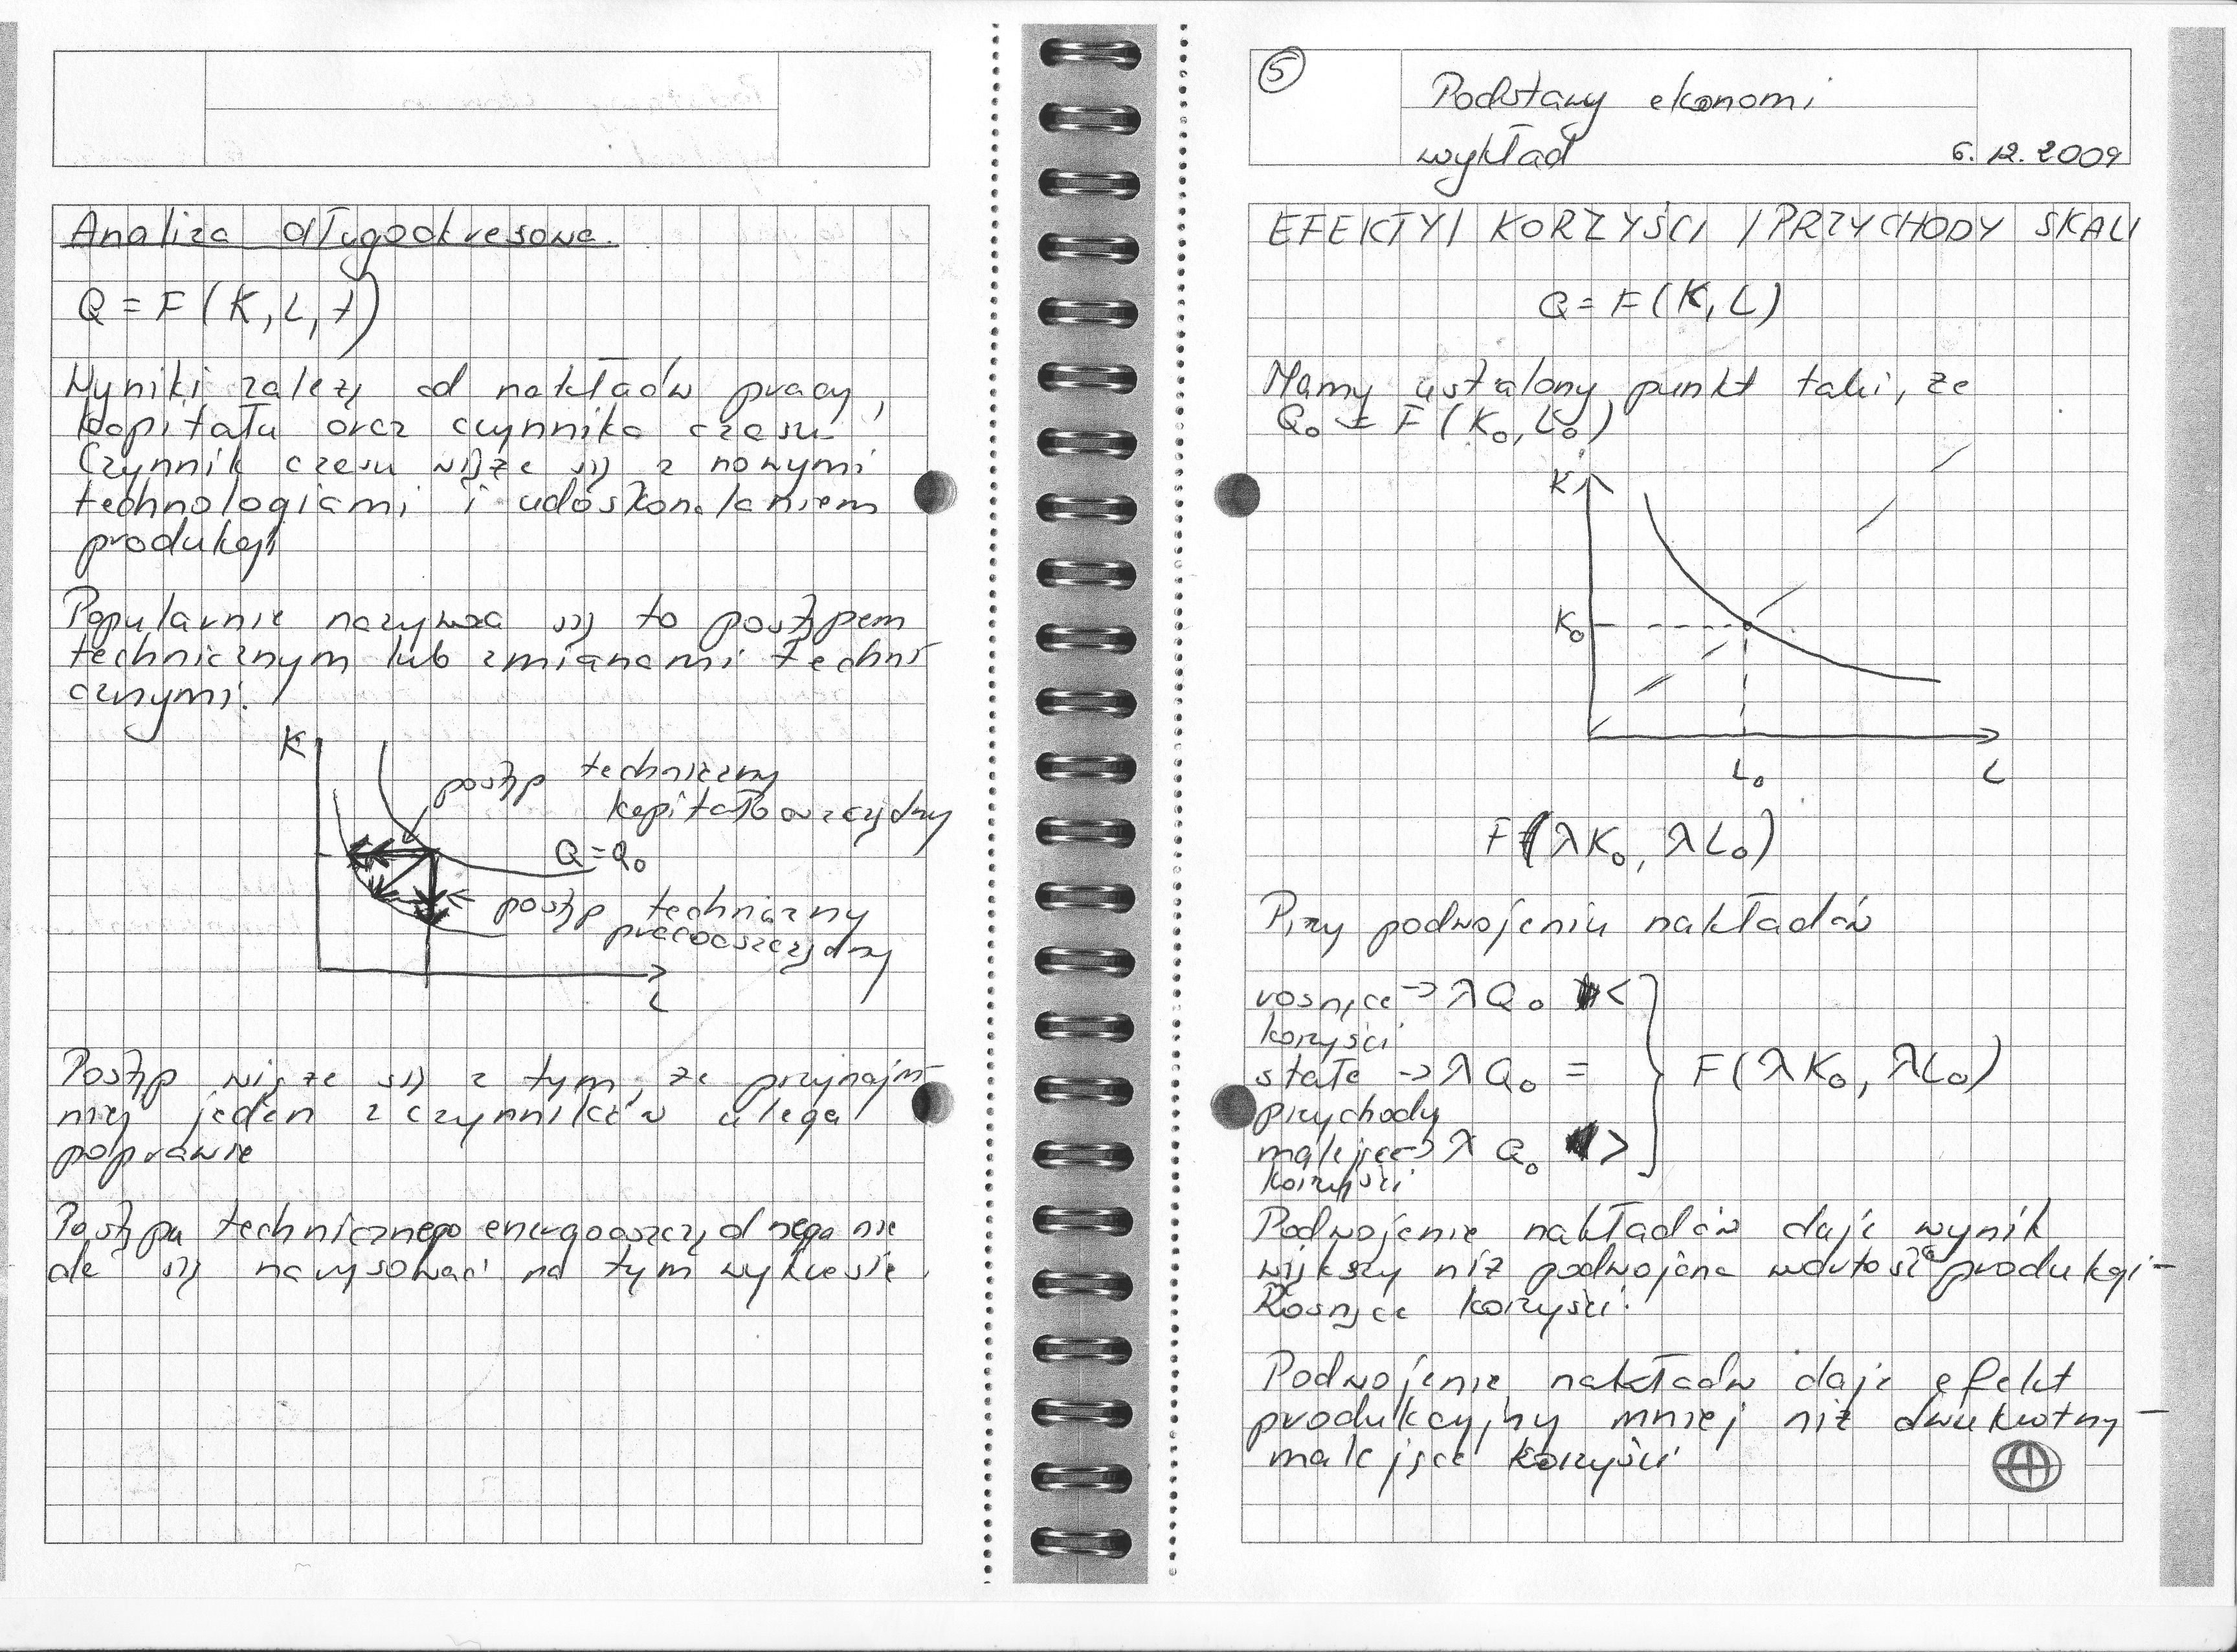 Analiza długookresowa.
Q = F (K, L, t)
Wyniki zależą od nakładów pracy,
kapitału oraz czynnika czasu.
Czynnik czasu wiąże się z nowymi
technologiami i udoskonalaniem
produkcji
Popularnie nazywa się to postępem
technicznym lub zmianami techni
cznymi.
K
postęp techniczny
kapitałooszczędny
Q = Q₀
postęp techniczny
pracooszczędny
L
Postęp wiąże się z tym, że przynajm-
niej jeden z czynników ulega
poprawie
Postępu technicznego energooszczędnego nie
da się narysować na tym wykresie.
5
Podstawy ekonomi
wykład 6.12.2009
EFEKTY/ KORZYŚCI / PRZYCHODY SKALI
Q = F (K, L)
Mamy ustalony punkt taki, że
Q₀ = F (K₀, L₀)
K
K₀
L₀ L
F (λK₀, λL₀)
Przy podwojeniu nakładów
rosnące -> λQ₀ <
korzyści
stałe -> λQ₀ = F (λK₀, λL₀)
przychody
malejące -> λQ₀ >
korzyści
Podwojenie nakładów daje wynik
większy niż podwojona wartość produkcji -
Rosnące korzyści.
Podwojenie nakładów daje efekt
produkcyjny mniej niż dwukrotny -
malejące korzyści